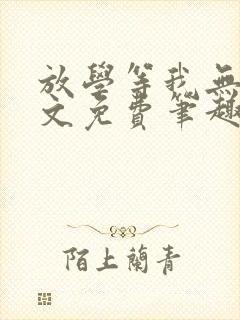 放學等我無
文免費筆趣
陌上蘭青